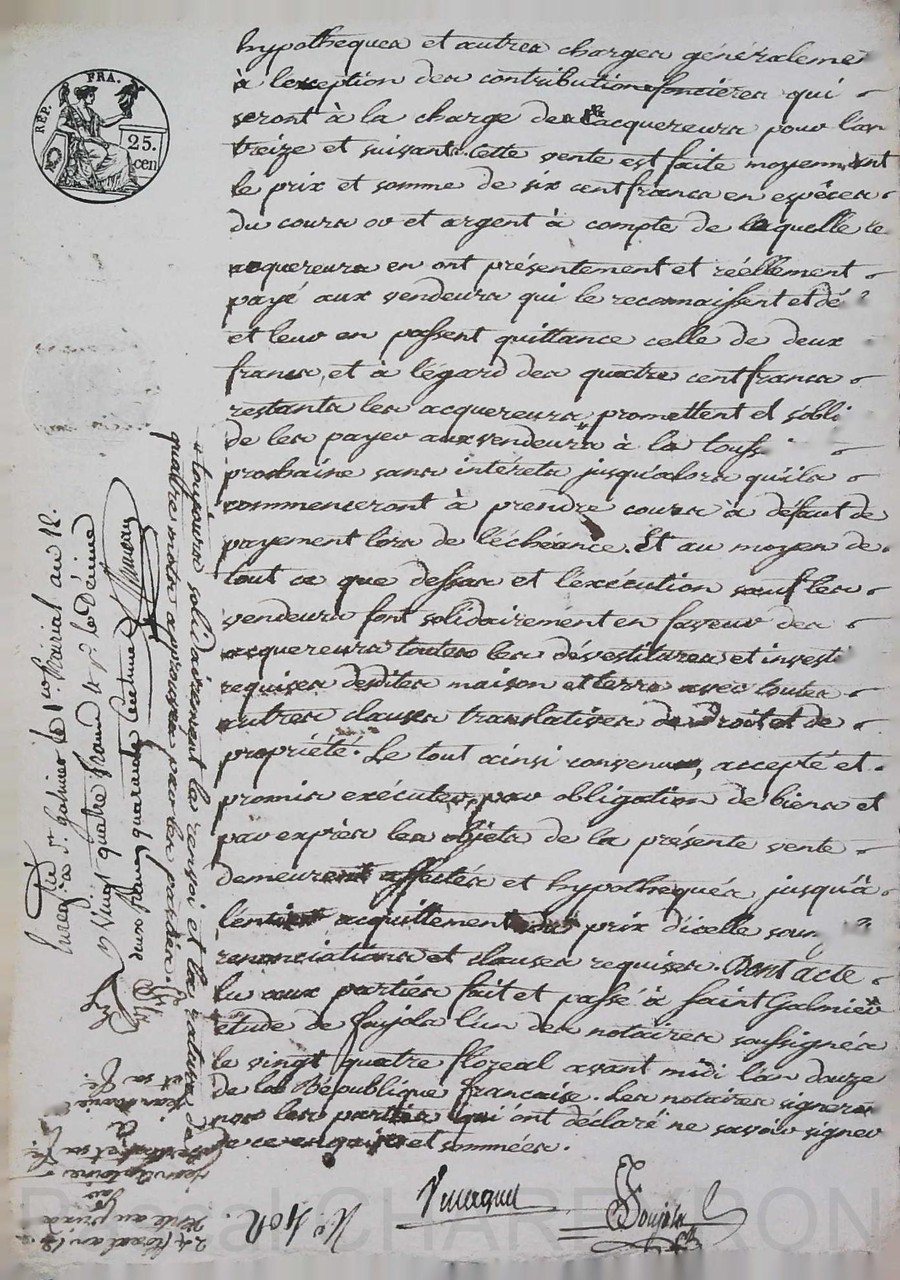 RÉP. FRA.
25.
cen
hypotheques et autres charges généraleme
à l'exception des contributions foncieres qui
seront à la charge des acquereurs pour l'an
treize et suivants. Cette vente est faite moyennant
le prix et somme de six cent francs en espèces
du cours or et argent à compte de laquelle le
acquereurs en ont présentement et réellement
payé aux vendeurs qui le reconnaissent et dé
et leur en passent quittance celle de deux
francs, et à l'égard des quatre cent francs
restants les acquereurs promettent et s'obli
de les payer aux vendeurs à la touss
prochaine sans intérets jusqu'alors qu'ils
commenceront à prendre cours à défaut de
payement lors de l'échéance. Et au moyen de
tout ce que dessas et l'exécution sauf les
vendeurs font solidairement en faveur des
acquereurs toutes les dévestitures et investi
requises desdites maison et terre avec toutes
autres clauses translatives de Droit et de
propriété. Le tout ainsi convenu, accepté et
promis exécuter, par obligation de biens et
par exprès les objets de la présente vente
demeurent affectés et hypothequés jusqu'à
lentier acquittement du prix d'icelle sous
renonciations et clauses requises. Dont acte
lu aux parties fait et passé à Saint Galmier
étude de Foujols l'un des notaires soussignés
le vingt quatre floreal avant midi l'an douze
de la République Française. Les notaires signeron
non les parties qui ont déclaré ne savoir signer
de ce enquis et sommées.
toujours solidairement le renvoi et la rature de
quatre mots approuvés par les parties
Enregistré à St Galmier le 1er prairial an 12.
Vingt quatre francs
deux francs quarante centimes
24 floreal an 12.
Vente au prix
par
Jean Antoine
et sa
à
Jean Marie
et sa
N° 402.
Foujols
Pascal CHAREYRON